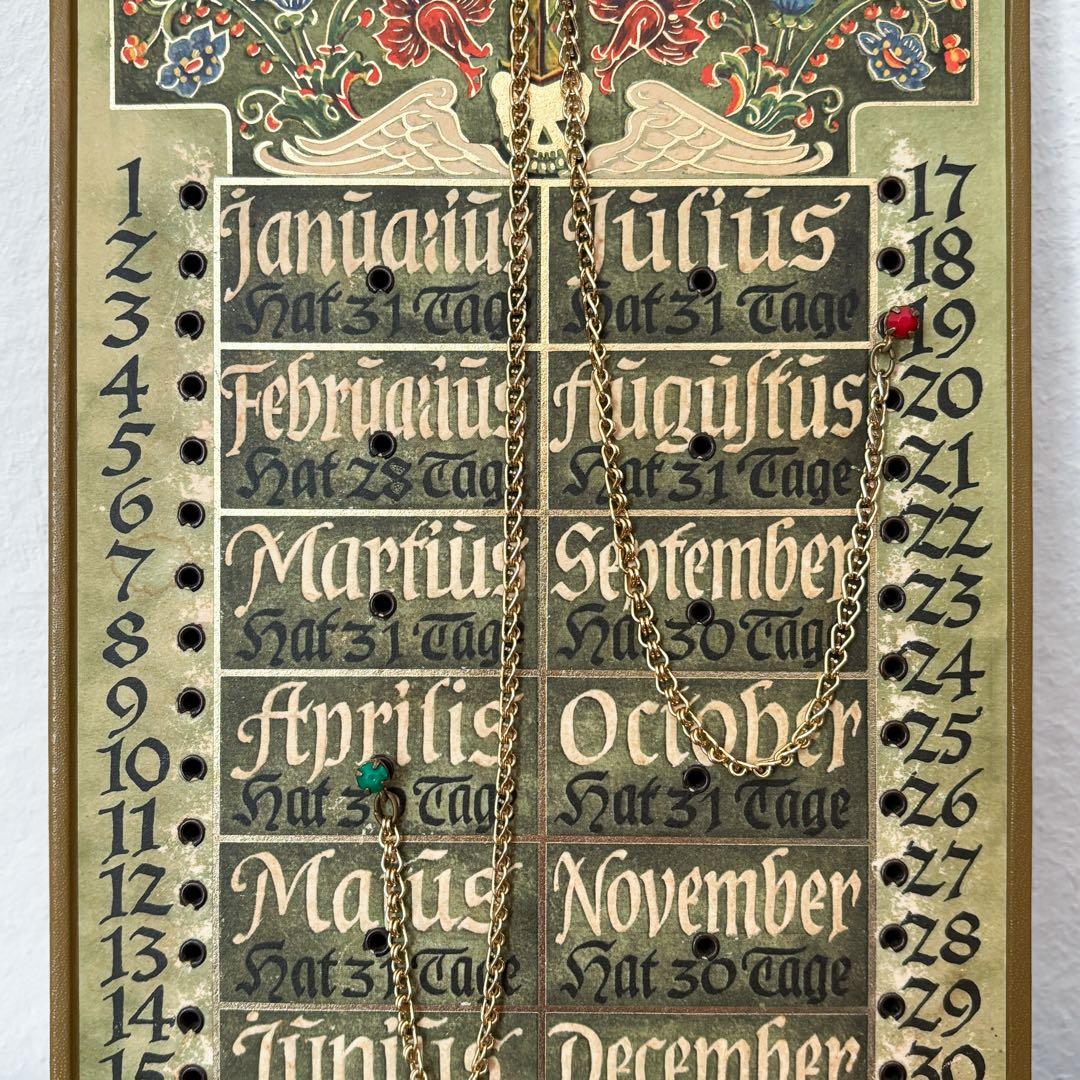 1
2
3
4
5
6
7
8
9
10
11
12
13
14
15
Janūariūs
Hat 31 Tage
Febrūariūs
Hat 28 Tage
Martiūs
Hat 31 Tage
Aprilis
Hat 30 Tage
Maiūs
Hat 31 Tage
Jūniūs
Jūliūs
Hat 31 Tage
Aūgūſtūs
Hat 31 Tage
September
Hat 30 Tage
October
Hat 31 Tage
November
Hat 30 Tage
December
17
18
19
20
21
22
23
24
25
26
27
28
29
30